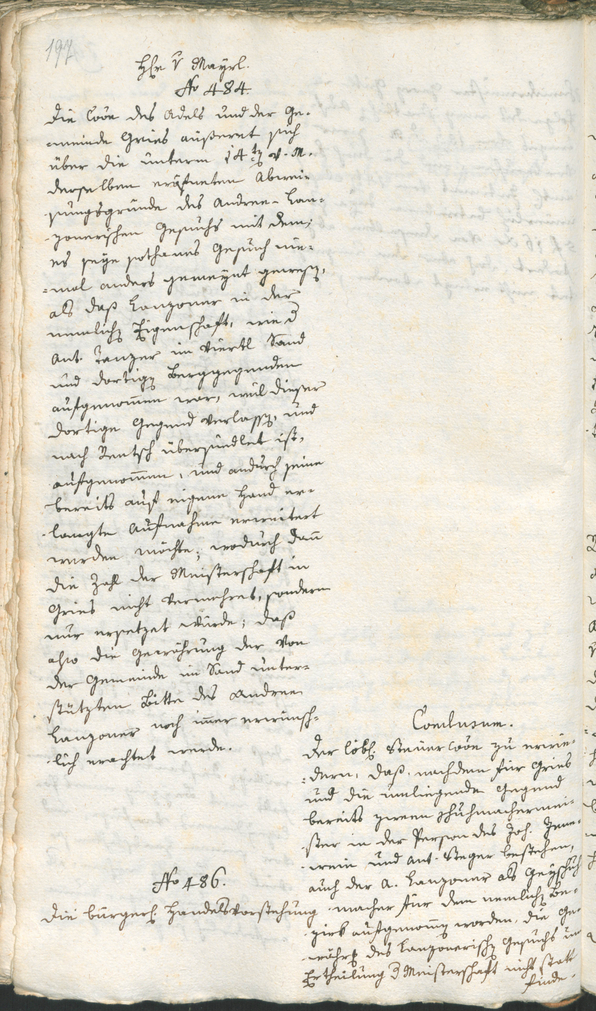 197
Hr. v. Mayrl.
No 484.
Die Cõõe des Adels und der Ge-
meinde Gries äußeret sich
über die unterm 14t. v. M.
derselben eröfneten Abwei-
sungsgründe des Andree Lan-
zonerschen Gesuchs mit dem,
es seye sothanes Gesuch nie-
mal anders gemeynt gewesen,
als daß Lanzoner in der
nemlichen Eigenschaft, wie d
Ant. Tanzer im Viertl Sand
und dortigen Berggegenden
aufgenommen war, weil dieser
dortige Gegend verlassen, und
nach Rentsch übersiedlet ist,
aufgenommen, und andurch seine
bereits auf eigene Hand er-
langte Aufnahme erweitert
werden möchte; wodurch dann
die Zahl der Meisterschaft in
Gries nicht vermehret, sondern
nur ersetzet würde; daß
also die Gewährung der von
der Gemeinde im Sand unter-
stützten Bitte des Andree
Lanzoner noch imer erwünsch-
lich erachtet werde.
Conclusum.
Der löbl. Steuercõõe zu erwie-
dern, daß, nachdem für Gries
und die umliegende Gegend
bereits zween Schuhmachermei-
ster in der Person des Joh.
und Ant. Steger bestehen,
auch der A. Lanzoner als
macher für den nemlichen Be-
zirk aufgenommen worden, die Ge-
währung des Lanzonerischen Gesuchs um
Ertheilung d Meisterschaft nicht statt
finde.
No 486.
Die bürgerl. Handelsvorstehung